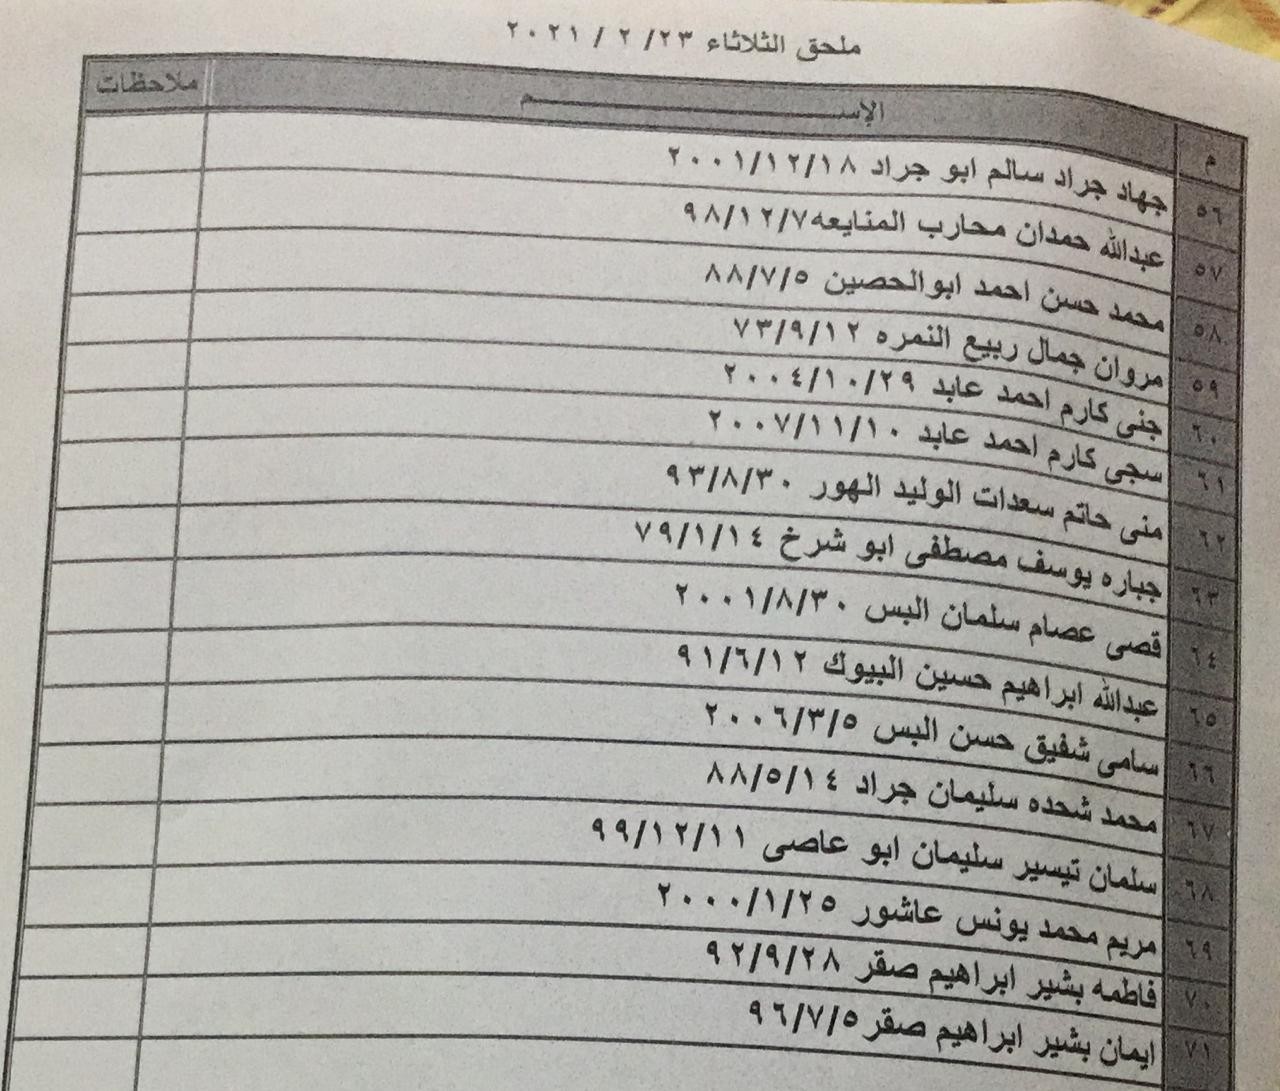 ملحق الثلاثاء ٢٣/ ٢ / ٢٠٢١
م الإســــــــم ملاحظات
٥٦ جهاد جراد سالم ابو جراد ٢٠٠١/١٢/١٨
٥٧ عبدالله حمدان محارب المنايعه٩٨/١٢/٧
٥٨ محمد حسن احمد ابوالحصين ٨٨/٧/٥
٥٩ مروان جمال ربيع النمره ٧٣/٩/١٢
٦٠ جنى كارم احمد عابد ٢٠٠٤/١٠/٢٩
٦١ سجى كارم احمد عابد ٢٠٠٧/١١/١٠
٦٢ منى حاتم سعدات الوليد الهور ٩٣/٨/٣٠
٦٣ جباره يوسف مصطفى ابو شرخ ٧٩/١/١٤
٦٤ قصى عصام سلمان البس ٢٠٠١/٨/٣٠
٦٥ عبدالله ابراهيم حسين البيوك ٩١/٦/١٢
٦٦ سامى شفيق حسن البس ٢٠٠٦/٣/٥
٦٧ محمد شحده سليمان جراد ٨٨/٥/١٤
٦٨ سلمان تيسير سليمان ابو عاصى ٩٩/١٢/١١
٦٩ مريم محمد يونس عاشور ٢٠٠٠/١/٢٥
٧٠ فاطمه بشير ابراهيم صقر ٩٢/٩/٢٨
٧١ ايمان بشير ابراهيم صقر٩٦/٧/٥